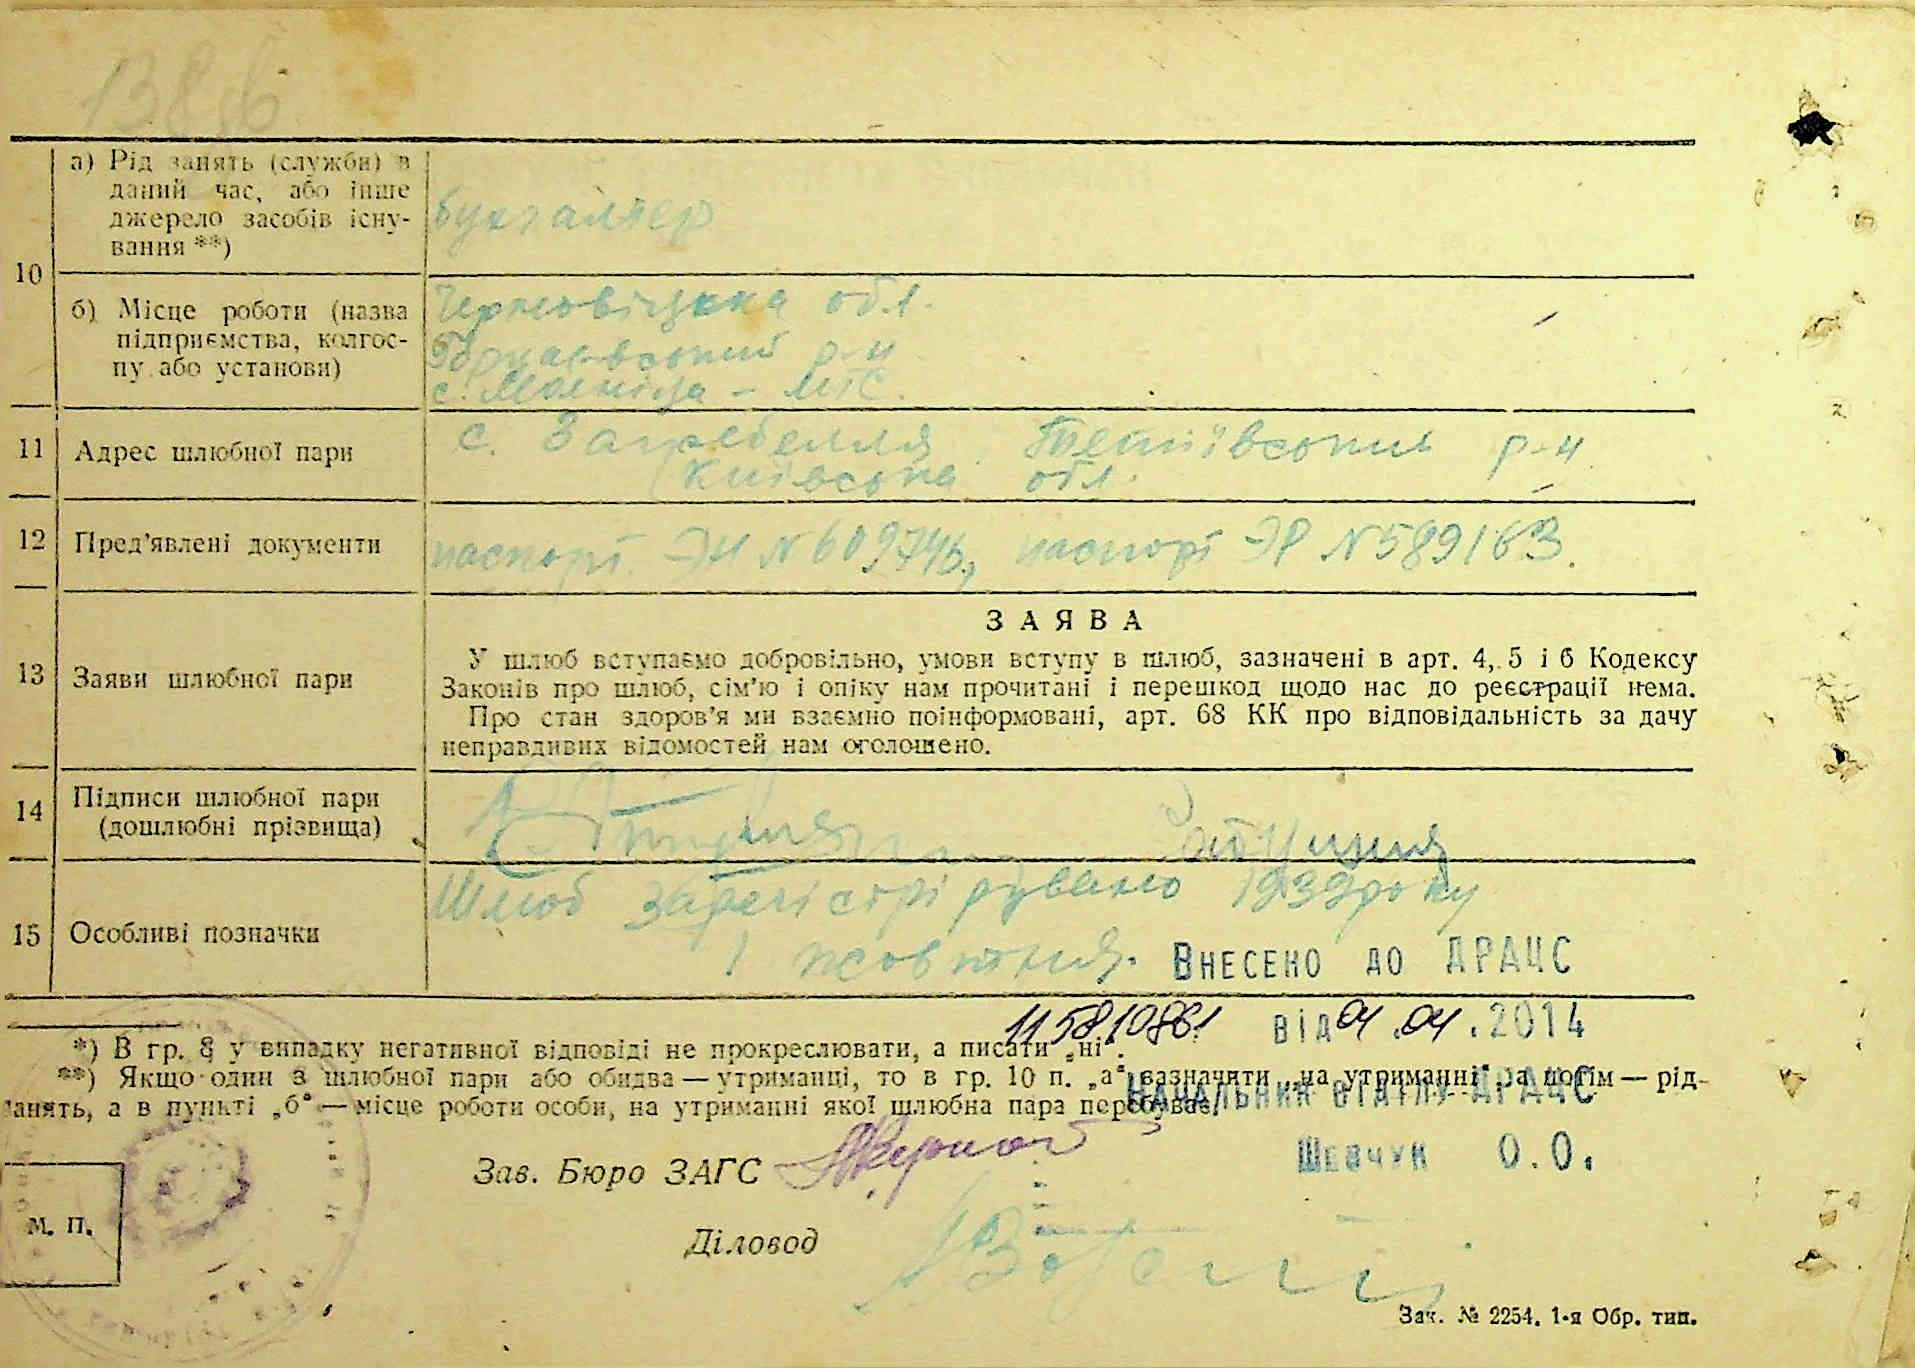 138 в
10
а) Рід занять (служби) в
даний час, або інше
джерело засобів існу-
вання **)
бухгалтер
б) Місце роботи (назва
підприємства, колгос-
пу або установи)
обл.
р-н
с. – МТС.
11 Адрес шлюбної пари
с. Тетіївський р-н
Київська обл.
12 Пред’явлені документи
паспорт ЭИ N 609746, паспорт ЭР N 589163.
13 Заяви шлюбної пари
ЗАЯВА
У шлюб вступаємо добровільно, умови вступу в шлюб, зазначені в арт. 4, 5 і 6 Кодексу
Законів про шлюб, сім’ю і опіку нам прочитані і перешкод щодо нас до реєстрації нема.
Про стан здоров’я ми взаємно поінформовані, арт. 68 КК про відповідальність за дачу
неправдивих відомостей нам оголошено.
14 Підписи шлюбної пари
(дошлюбні прізвища)
15 Особливі позначки
Шлюб 1939 року
1 жовтня.
Внесено до ДРАЦС
від 01.04.2014
*) В гр. 8 у випадку негативної відповіді не прокреслювати, а писати „ні“.
**) Якщо один з шлюбної пари або обидва — утриманці, то в гр. 10 п. „а“ зазначити „на утриманні“ за потім — рід-
занять, а в пункті „б“ — місце роботи особи, на утриманні якої шлюбна пара перебуває.
Начальник відділу ДРАЦС
Шевчук О.О.
Зав. Бюро ЗАГС
М. П.
Діловод
Зач. № 2254. 1-я Обр. тип.